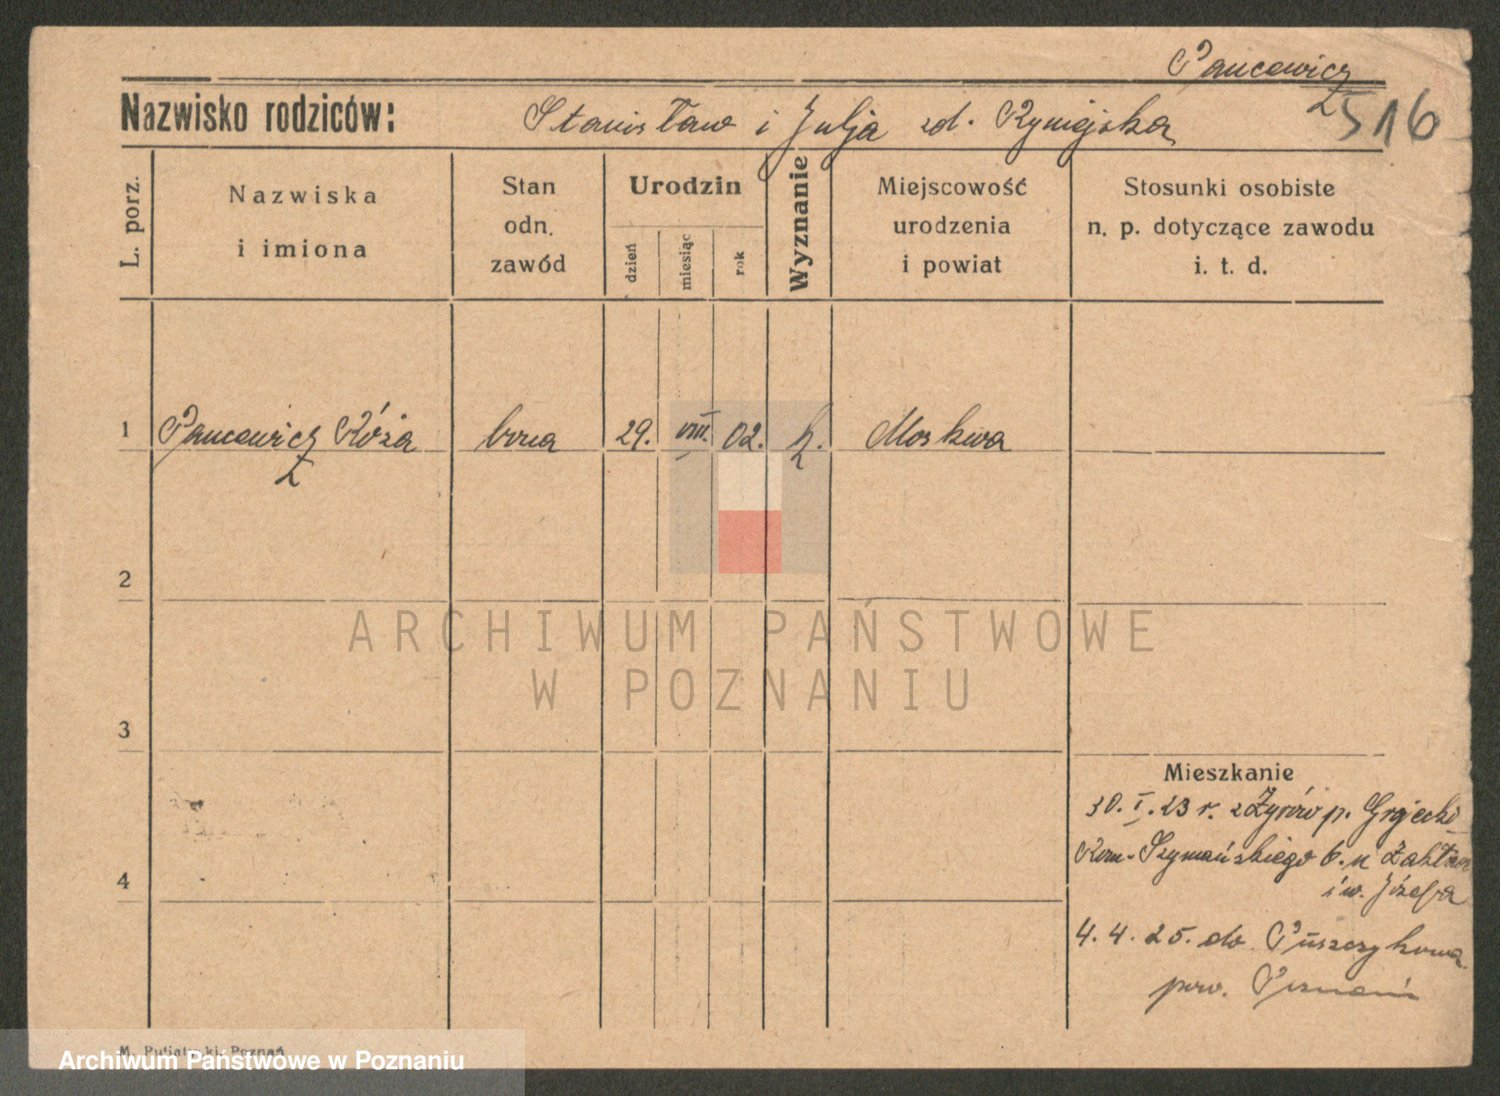 Pancewicz
516
Nazwisko rodziców: Stanisław i Julja zd.
L. porz.
Nazwiska
i imiona
Stan
odn.
zawód
Urodzin
dzień
miesiąc
rok
Wyznanie
Miejscowość
urodzenia
i powiat
Stosunki osobiste
n. p. dotyczące zawodu
i. t. d.
1 Pancewicz Róża bona 29. VIII. 02. k. Moskwa
2
3
4
ARCHIWUM PAŃSTWOWE
W POZNANIU
Mieszkanie
30. I. 23 r. z p. Grójecki
Kom. Szymańskiego 6. u Zakład
św. Józefa
4. 4. 25. do Puszczykowa
pow. Poznań
M. Putiatycki, Poznań
Archiwum Państwowe w Poznaniu